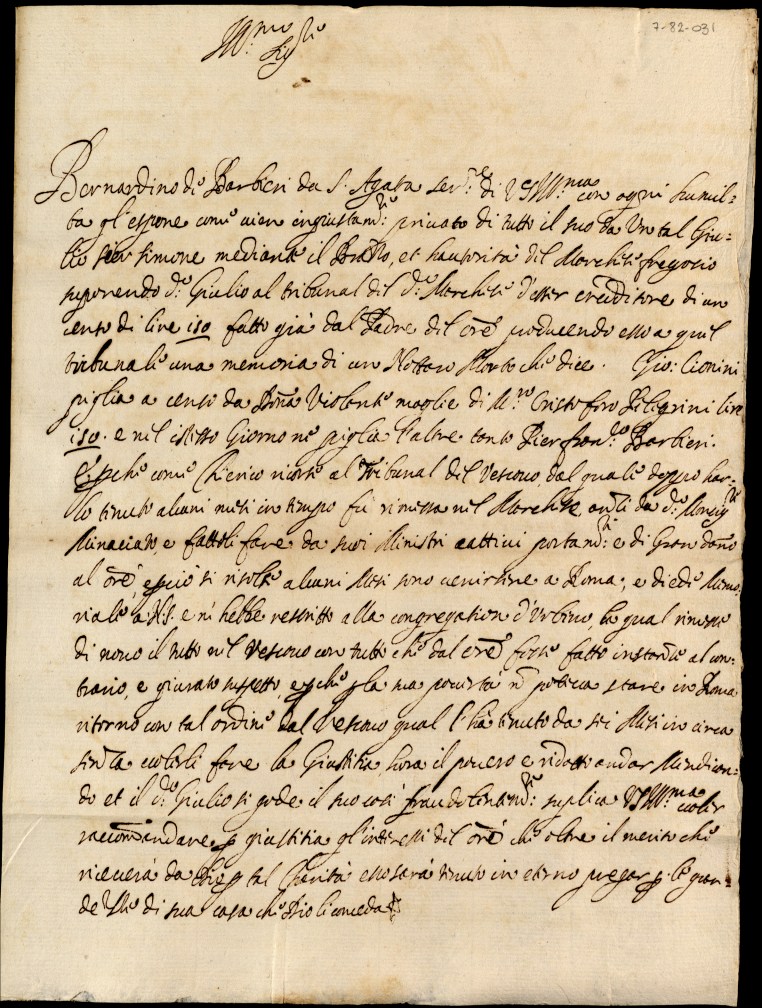 7-82-031
Ill.mo Sig.re
Bernardino de Barbieri da S. Agata ser.re di VS Ill.ma con ogni humil=
ta gl'espone come vien ingiustam.te privato di tutto il suo da Un tal Giu=
lio Simone mediante il, et hautorita del Marchese fregosio
suponendo d.o Giulio al tribunal del d.o Marchese d'esser creditore di un
censo di lire 150 fatto già dal Padre del ore producendo esso a quel
tribunale una memoria di un Nottaro Morto che dice. Gio: Lionini
piglia a censo da Dona Violente moglie di M.ro Cristoforo Peligrini lire
150. e nel istesso Giorno ne piglia l'altre tante Pierfran.co Barbieri.
E p che come Chierico ricorse al Tribunal del Vescovo, dal quale doppo haver=
lo tenuto alcuni mesi in tempo fù rimessa nel Marchese da d.o Monsig.re
Minaciato e fattoli fare da suoi Ministri cattivi portam.ti e di Gran dano
al ore, e p ciò si risolse alcuni Mesi sono venirsene a Roma; e diede Memo=
riale a N.S. e n'hebbe rescritto alla congregation d'Urbino, la qual rimesse
di novo il tutto nel Vescovo con tutto che dal ore fosse fatto instanza al con=
trario, e giurato suspetto e p che p la sua povertà n poteva stare in Roma
ritorno con tal ordine dal Vescovo qual l'hà tenuto da sei Mesi in circa
senza volerli fare la Giustitia hora il povero e ridotto andar Mendican=
do et il d.o Giulio si gode il suo così fraudolentem.te: suplica VS Ill.ma voler
racomandare p giustitia gl'interessi del ore che oltre il merito che
riceverà da Dio p tal Charità esso sarà tenuto in eterno pregar p le gran=
de di sua casa che Dio li conceda